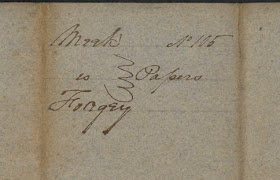 Meek No 105
vs Papers
Forgey